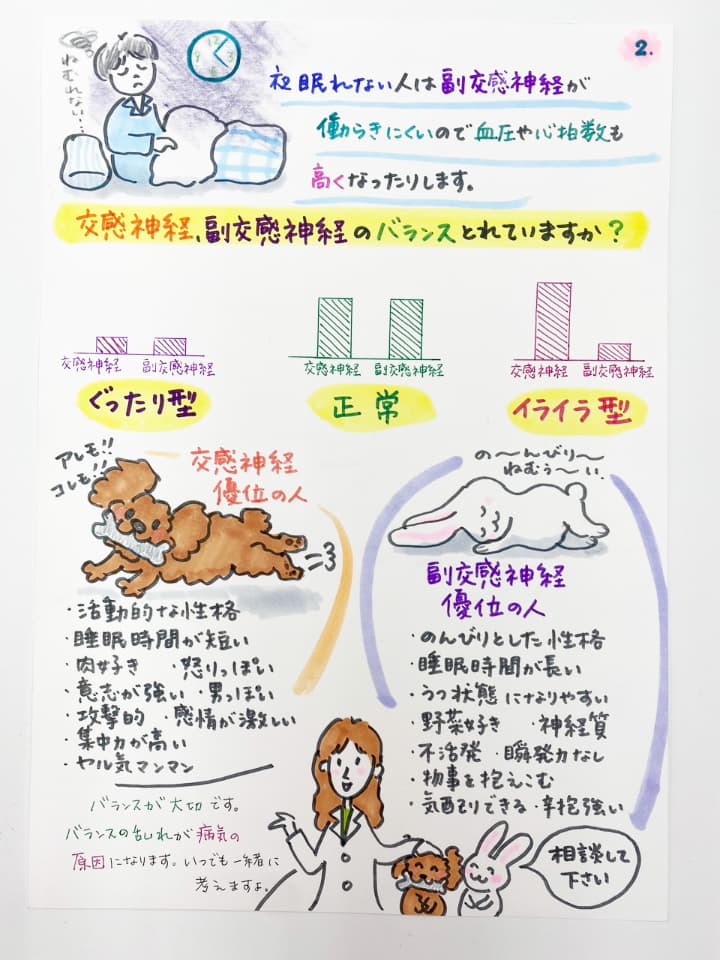 2.
ねむれない…
12
3
6
9
夜眠れない人は副交感神経が
働らきにくいので血圧や心拍数も
高くなったりします。
交感神経、副交感神経のバランスとれていますか?
交感神経 副交感神経
ぐったり型
交感神経 副交感神経
正常
交感神経 副交感神経
イライラ型
アレモ!!
コレモ!!
交感神経
優位の人
・活動的な性格
・睡眠時間が短い
・肉好き ・怒りっぽい
・意志が強い ・男っぽい
・攻撃的 ・感情が激しい
・集中力が高い
・ヤル気マンマン
の〜んびり〜
ねむう〜い。
副交感神経
優位の人
・のんびりとした性格
・睡眠時間が長い
・うつ状態になりやすい
・野菜好き ・神経質
・不活発 ・瞬発力なし
・物事を抱えこむ
・気配りできる ・辛抱強い
バランスが大切です。
バランスの乱れが病気の
原因になります。いつでも一緒に
考えますよ。
相談して
下さい